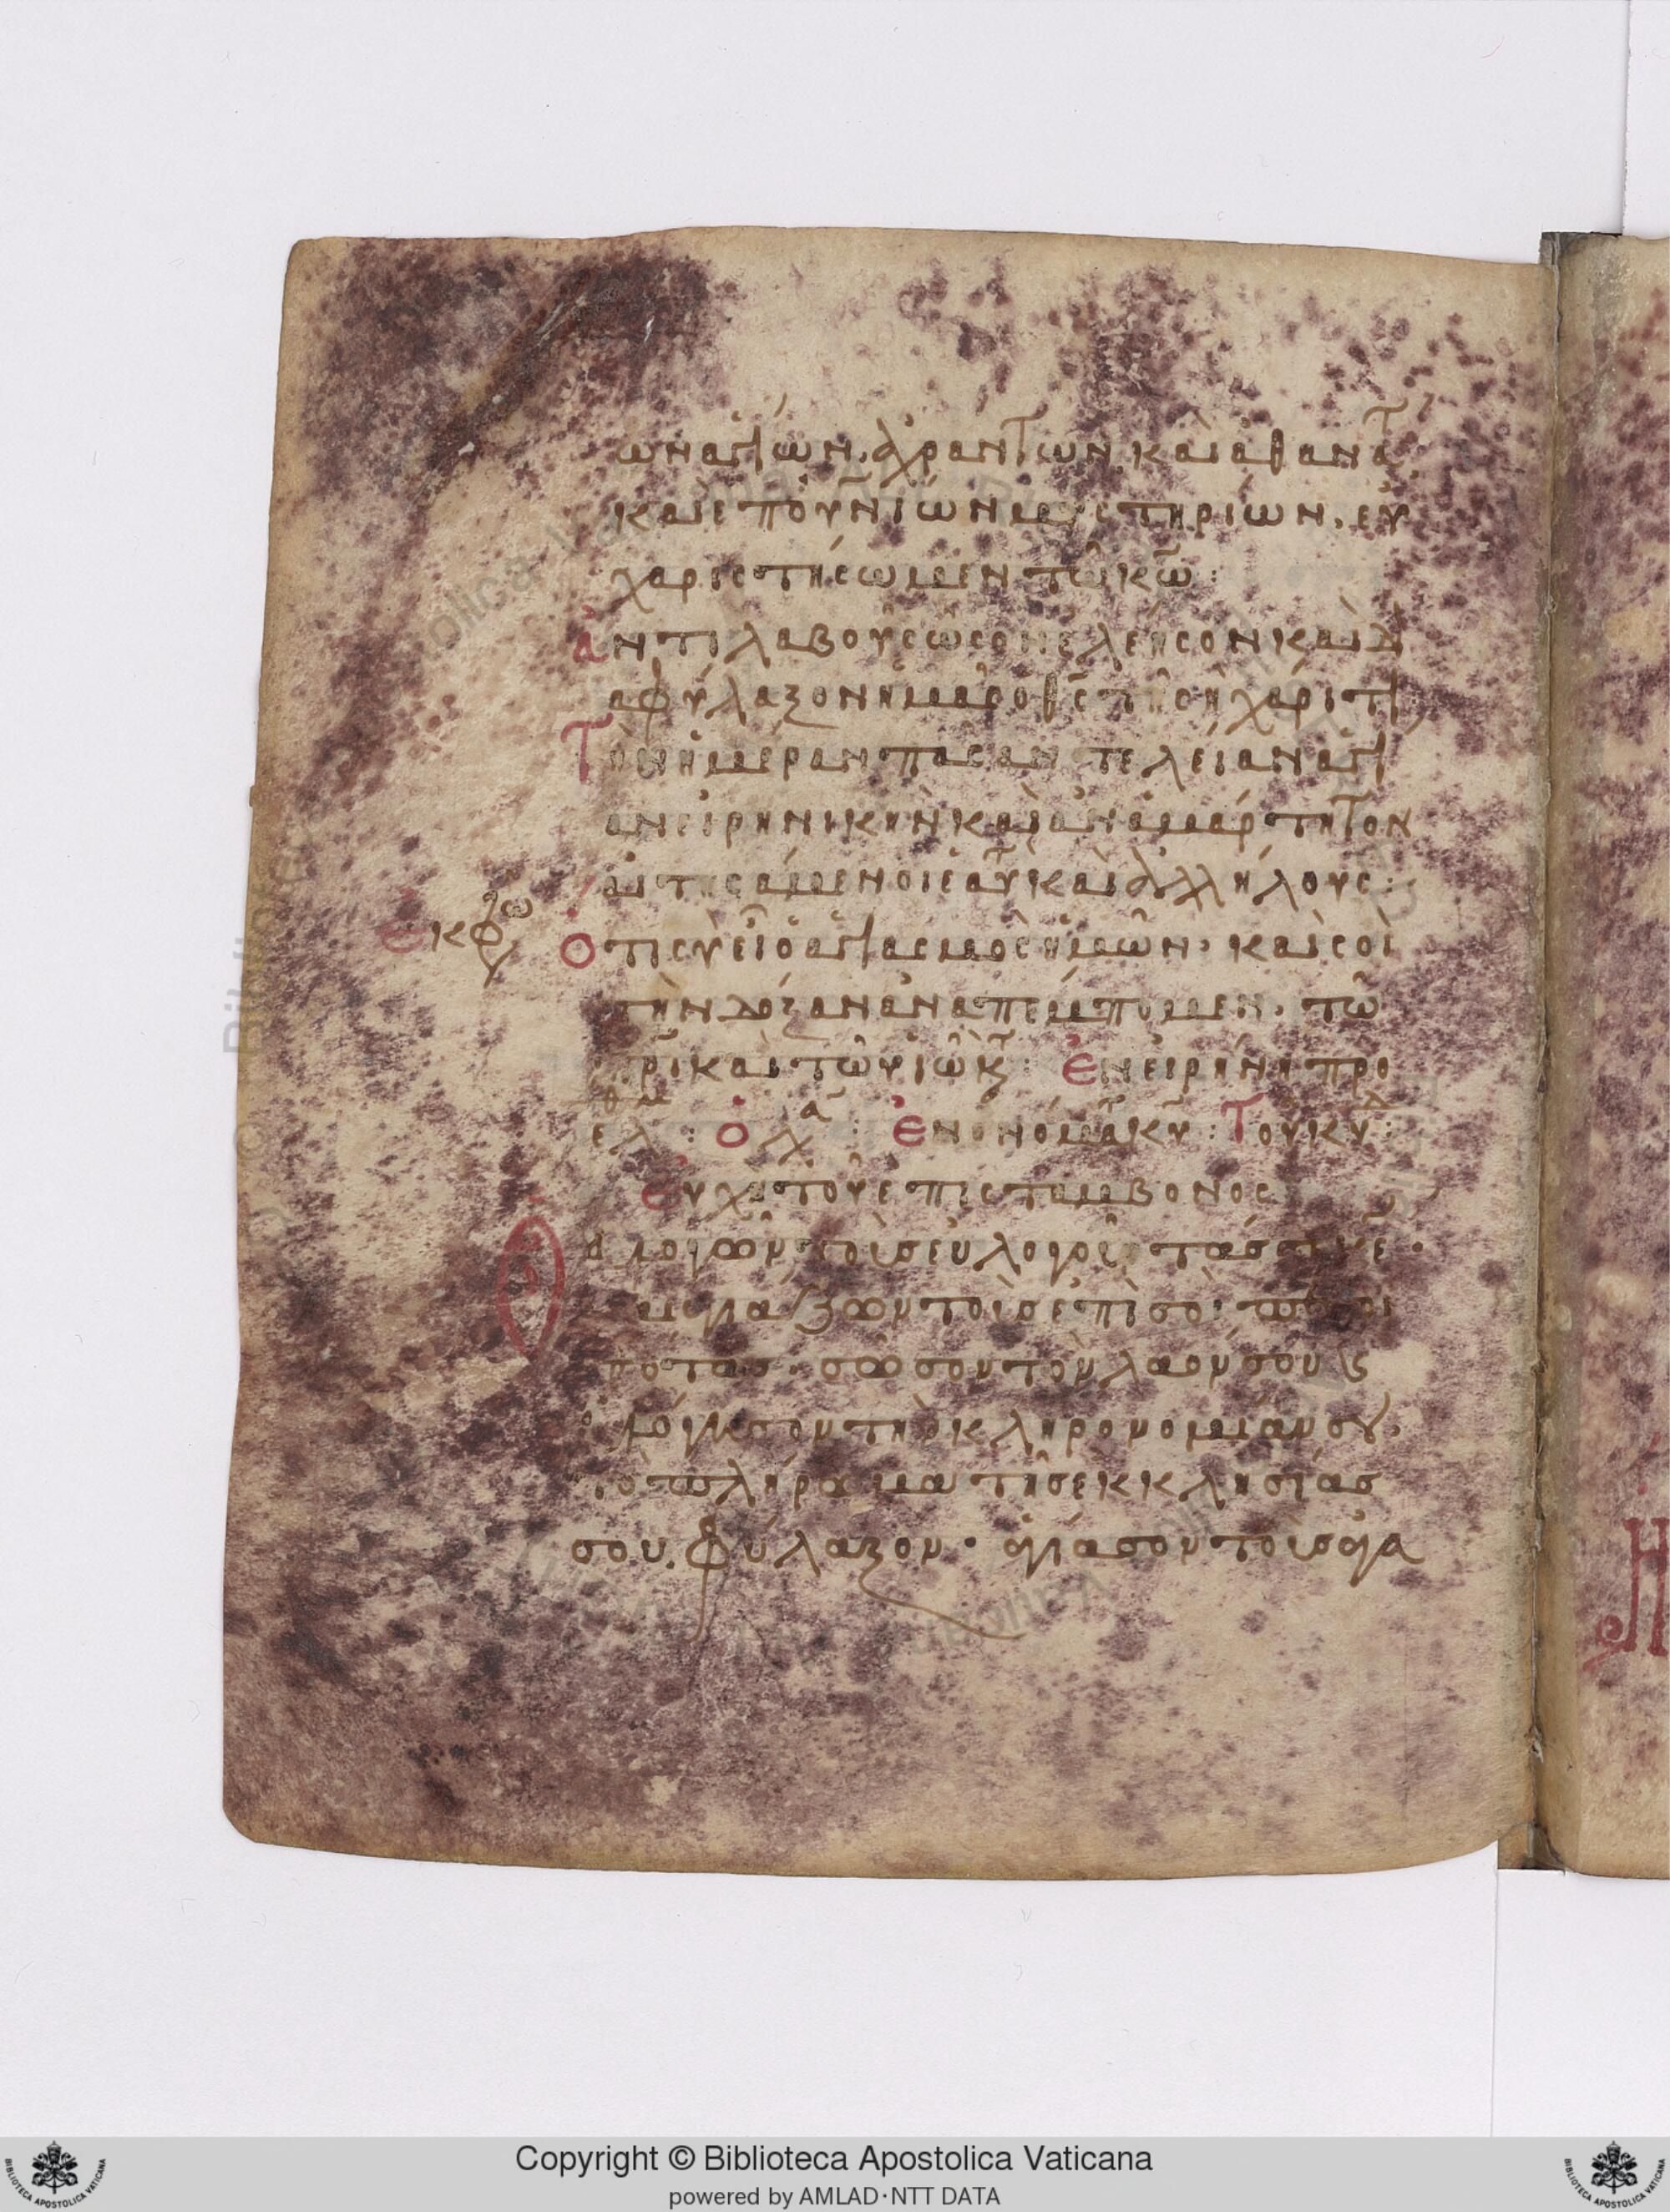 ων αγίων, ἀχράντων καὶ ἀθανάτ
καὶ ἐπουνίων μυστηρίων, εὐ
χαριστήσωμεν τῶ κῶ:
ἀντιλαβοῦ σῶσον ἐλέησον καὶ δι
αφύλαξον ἡμᾶς ὁ θς τῆ σῆ χάριτι
Τὴν ἡμέραν πᾶσαν τελείαν ἁγί
αν εἰρηνικὴν καὶ ἀναμάρτητον
αἰτησάμενοι ἑαυτ καὶ ἀλλήλους:
ἐκφω Ὅτι σὺ εἶ ὁ ἁγιασμὸς ἡμῶν. καὶ σοὶ
τὴν δόξαν ἀναπέμπομεν. τῶ
πρὶ καὶ τῶ υἱῶ κ: ἐν εἰρήνη προ
ελ: ὁ λα: Ἐν ὀνόματι κυ: Τοῦ κυ δ:
Εὐχὴ τοῦ ἐπισταμβονος
Ὁ εὐλογῶν τοὺς εὐλογοῦντάς σε κυε.
ἁγιάζων τοὺς ἐπὶ σοὶ πεποι
θότας. σῶσον τὸν λαόν σου κ
εὐλόγησον τὴν κληρονομίαν σου.
τὸ πλήρωμα τῆς ἐκκλησίας
σου φύλαξον. ἁγίασον τοὺς ἀγα
Copyright © Biblioteca Apostolica Vaticana
powered by AMLAD·NTT DATA